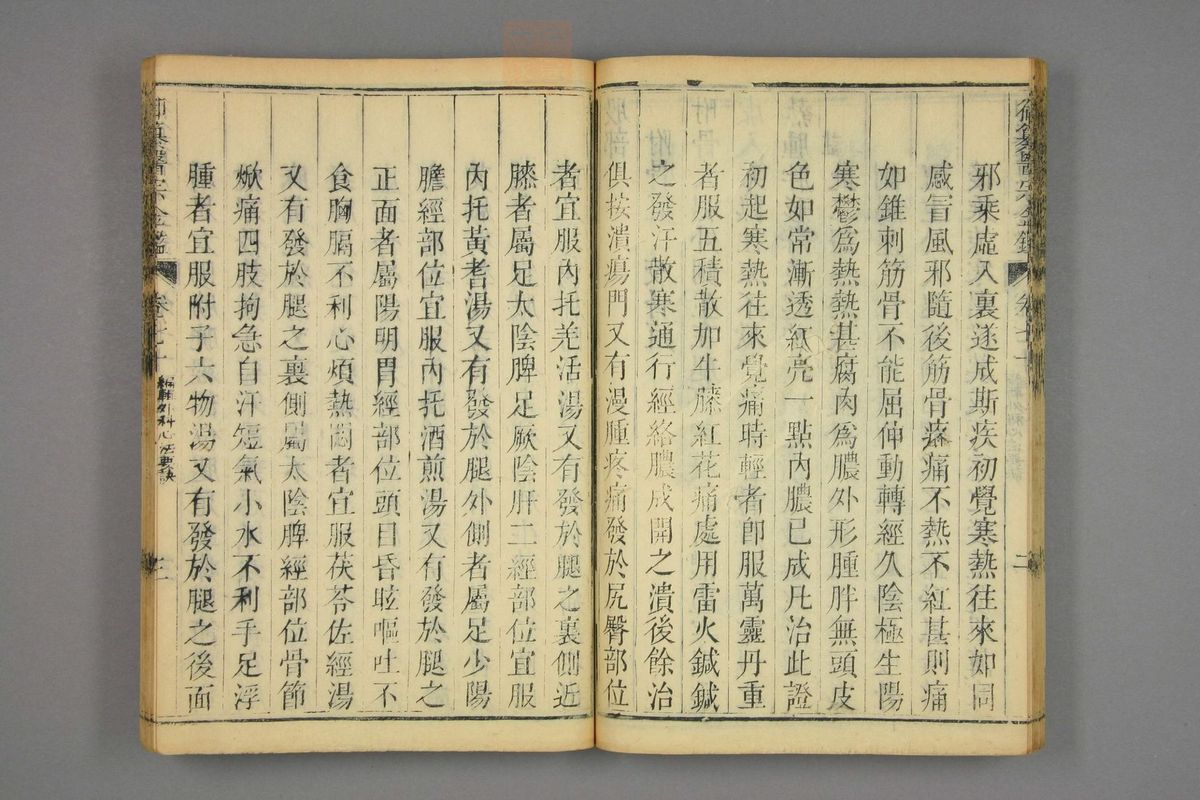 邪乘虛入裏遂成斯疾初覺寒熱往來如同
感冒風邪隨後筋骨疼痛不熱不紅甚則痛
如錐刺筋骨不能屈伸動轉經久陰極生陽
寒鬱爲熱熱甚腐肉爲膿外形腫胖無頭皮
色如常漸透紅亮一點內膿已成凡治此證
初起寒熱往來覺痛時輕者卽服萬靈丹重
者服五積散加牛膝紅花痛處用雷火鍼鍼
之發汗散寒通行經絡膿成開之潰後餘治
俱按潰瘍門又有漫腫疼痛發於尻臀部位
者宜服內托羌活湯又有發於腿之裏側近
膝者屬足太陰脾足厥陰肝二經部位宜服
內托黃耆湯又有發於腿外側者屬足少陽
膽經部位宜服內托酒煎湯又有發於腿之
正面者屬陽明胃經部位頭目昏眩嘔吐不
食胸膈不利心煩熱悶者宜服茯苓佐經湯
又有發於腿之裏側屬太陰脾經部位骨節
焮痛四肢拘急自汗短氣小水不利手足浮
腫者宜服附子六物湯又有發於腿之後面
御纂醫宗金鑑
卷七十
編輯外科心法要訣